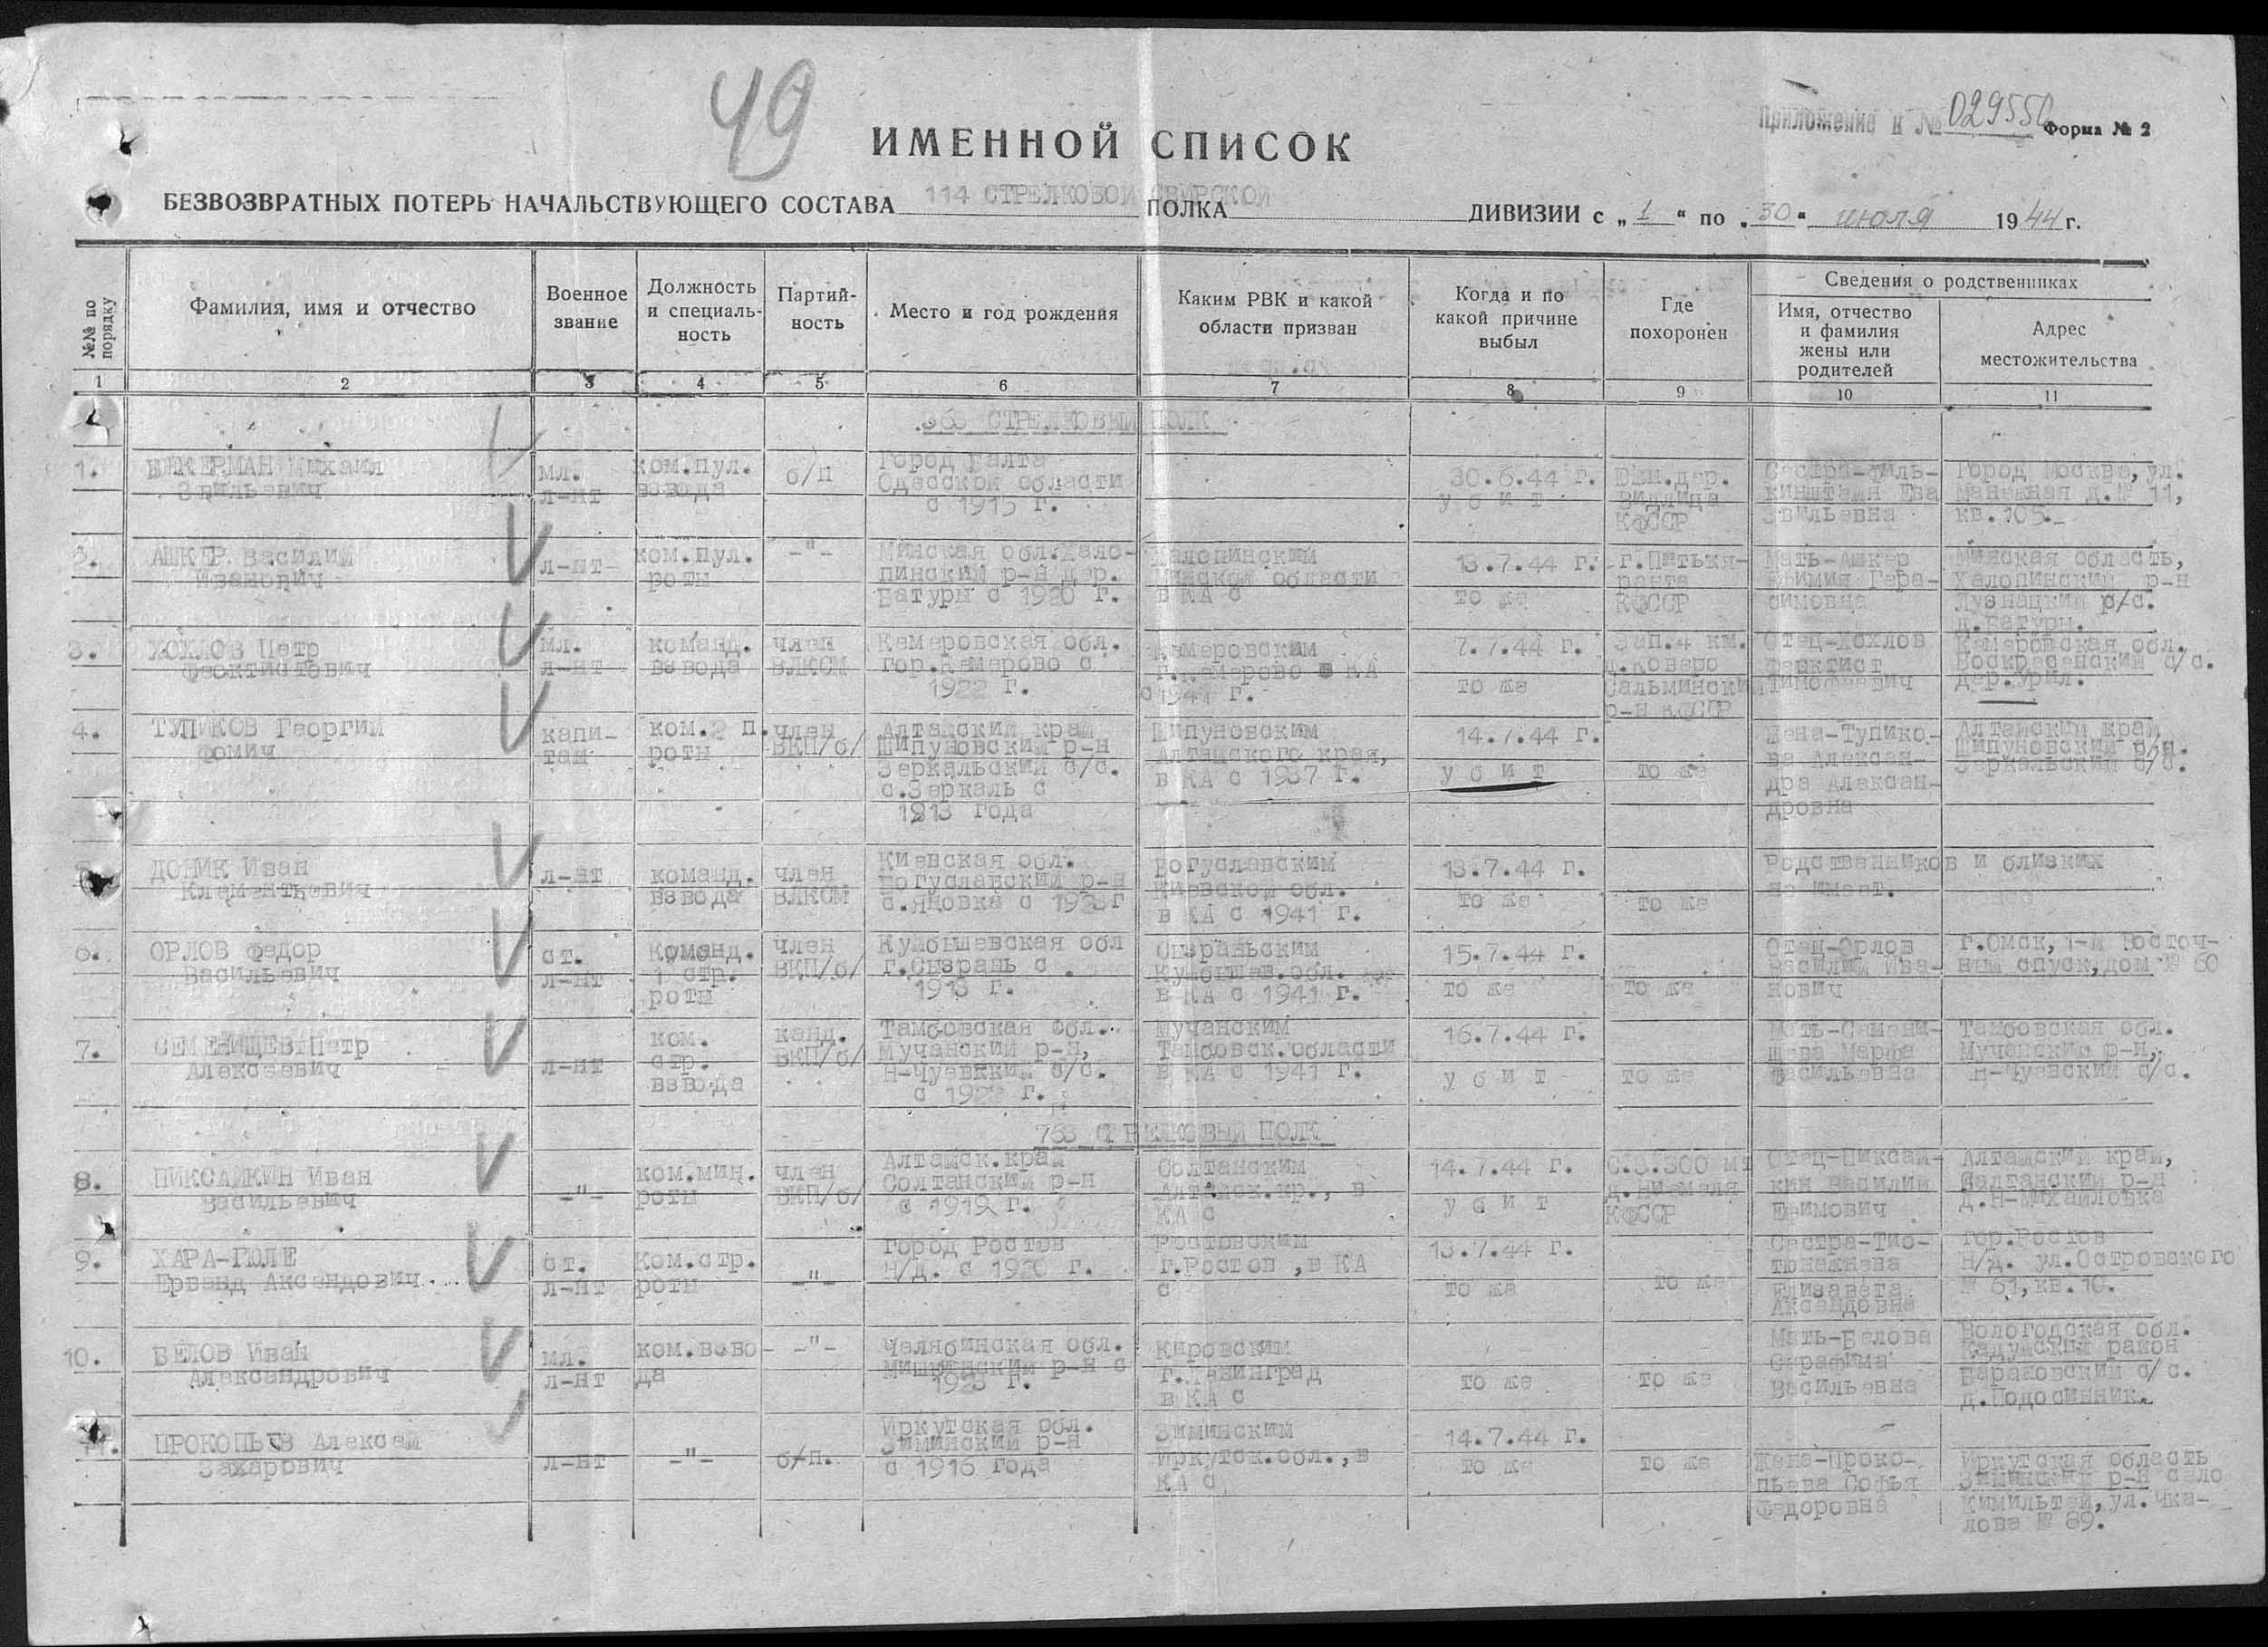 49
Приложение к № 029550
Форма № 2
ИМЕННОЙ СПИСОК
БЕЗВОЗВРАТНЫХ ПОТЕРЬ НАЧАЛЬСТВУЮЩЕГО СОСТАВА 114 СТРЕЛКОВОЙ СВИРСКОЙ ПОЛКА ДИВИЗИИ с „1“ по „30“ июля 1944 г.
№№ по порядку
Фамилия, имя и отчество
Военное звание
Должность и специальность
Партийность
Место и год рождения
Каким РВК и какой области призван
Когда и по какой причине выбыл
Где похоронен
Сведения о родственниках
Имя, отчество и фамилия жены или родителей
Адрес местожительства
1 2 3 4 5 6 7 8 9 10 11
363 СТРЕЛКОВЫЙ ПОЛК
1.
Михаил
мл.
л-нт
ком.пул.
взвода
б/п
Город Балта
Одесской области
с 1915 г.
30.6.44 г.
у б и т
Южн.дер.
Видлица
КФССР
Сестра-Филь-
кинштейн Ева
Звильевна
Город Москва, ул.
Манежная д.№ 11,
кв.105.
АШКЕР Василий
Иванович
л-нт
ком.пул.
роты
-"-
Минская обл.Хало-
пинский р-н дер.
Батуры с 1920 г.
Халопинским
Минской области
в КА с
13.7.44 г.
то же
г.Питкя-
ранта
КФССР
Мать-Ашкер
Ефимия Гера-
симовна
Минская область,
Халопинский р-н
Лузнацкий с/с.
д.Батуры.
3.
ХОХЛОВ Петр
Феоктистович
мл.
л-нт
команд.
взвода
член
ВЛКСМ
Кемеровская обл.
гор.Кемерово с
1922 г.
Кемеровским
г.Кемерово в КА
с 1941 г.
7.7.44 г.
то же
Зап.4 км.
д.Коверо
Сальминский
р-н КФССР
Отец-Хохлов
Феоктист
Тимофеевич
Кемеровская обл.
Воскресенский с/с.
дер.Урил.
4.
ТУПИКОВ Георгий
Фомич
капи-
тан
ком.2 п.
роты
член
ВКП/б/
Алтайский край
Шипуновский р-н
Зеркальский с/с.
с.Зеркаль с
1913 года
Шипуновским
Алтайского края,
в КА с 1937 г.
14.7.44 г.
у б и т
то же
Жена-Тупико-
ва Алексан-
дра Алексан-
дровна
Алтайский край
Шипуновский р-н.
Зеркальский с/с.
ДОНИК Иван
Клементьевич
л-нт
команд.
взвода
член
ВЛКСМ
Киевская обл.
Богуславский р-н
с.Яновка с
Богуславским
Киевской обл.
в КА с 1941 г.
13.7.44 г.
то же
то же
Родственников и близких
не имеет.
6.
ОРЛОВ Федор
Васильевич
ст.
л-нт
Команд.
1 стр.
роты
член
ВКП/б/
Куйбышевская обл
г.Сызрань с
1913 г.
Сызраньским
Куйбышев.обл.
в КА с 1941 г.
15.7.44 г.
то же
то же
Отец-Орлов
Василий Ива-
нович
г.Омск, 1-й Восточ-
ный спуск, дом № 60
7.
СЕМЕНИЩЕВ Петр
Алексеевич
л-нт
ком.
стр.
взвода
канд.
ВКП/б/
Тамбовская обл.
Мучанский р-н,
Н-Чуевкий с/с.
Мучанским
Тамбовск.области
в КА с 1941 г.
16.7.44 г.
у б и т
то же
Мать-Семени-
щева Марфа
Васильевна
Тамбовская обл.
Мучанский р-н,
Н-Чуевский с/с.
763 СТРЕЛКОВЫЙ ПОЛК
8.
ПИКСАЙКИН Иван
Васильевич
-"-
ком.мин.
роты
член
ВКП/б/
Алтайск.край
Солтанский р-н
с 1919 г.
Солтанским
Алтайск.кр., в
КА с
14.7.44 г.
у б и т
С.З.300 мт
д.Ниемеля
КФССР
Отец-Пиксай-
кин Василий
Ефимович
Алтайский край,
Салтанский р-н
д.Н-Михайловка
9.
ХАРА-ГЮЛЕ
Ерванд Аксендович
ст.
л-нт
Ком.стр.
роты
-"-
Город Ростов
Н/Д. с 1920 г.
Ростовским
г.Ростов ,в КА
с
13.7.44 г.
то же
то же
Елизавета
Аксендовна
гор.Ростов
Н/Д. ул.Островского
№ 61, кв.10.
10.
БЕЛОВ Иван
Александрович
мл.
л-нт
ком.взво-
да
-"-
Челябинская обл.
Мишкинский р-н с
1923 г.
Кировским
г.Ленинград
в КА с
то же
то же
Мать-Белова
Серафима
Васильевна
Вологодская обл.
Кадуйский район
Барановский с/с.
д.Подосинник.
11.
ПРОКОПЬЕВ Алексей
Захарович
л-нт
-"-
б/п.
Иркутская обл.
Зиминский р-н
с 1916 года
Зиминским
Иркутск.обл.,в
КА с
14.7.44 г.
то же
то же
Жена-Проко-
пьева Софья
Федоровна
Иркутская область
Зиминский р-н село
Кимильтей, ул.Чка-
лова № 89.